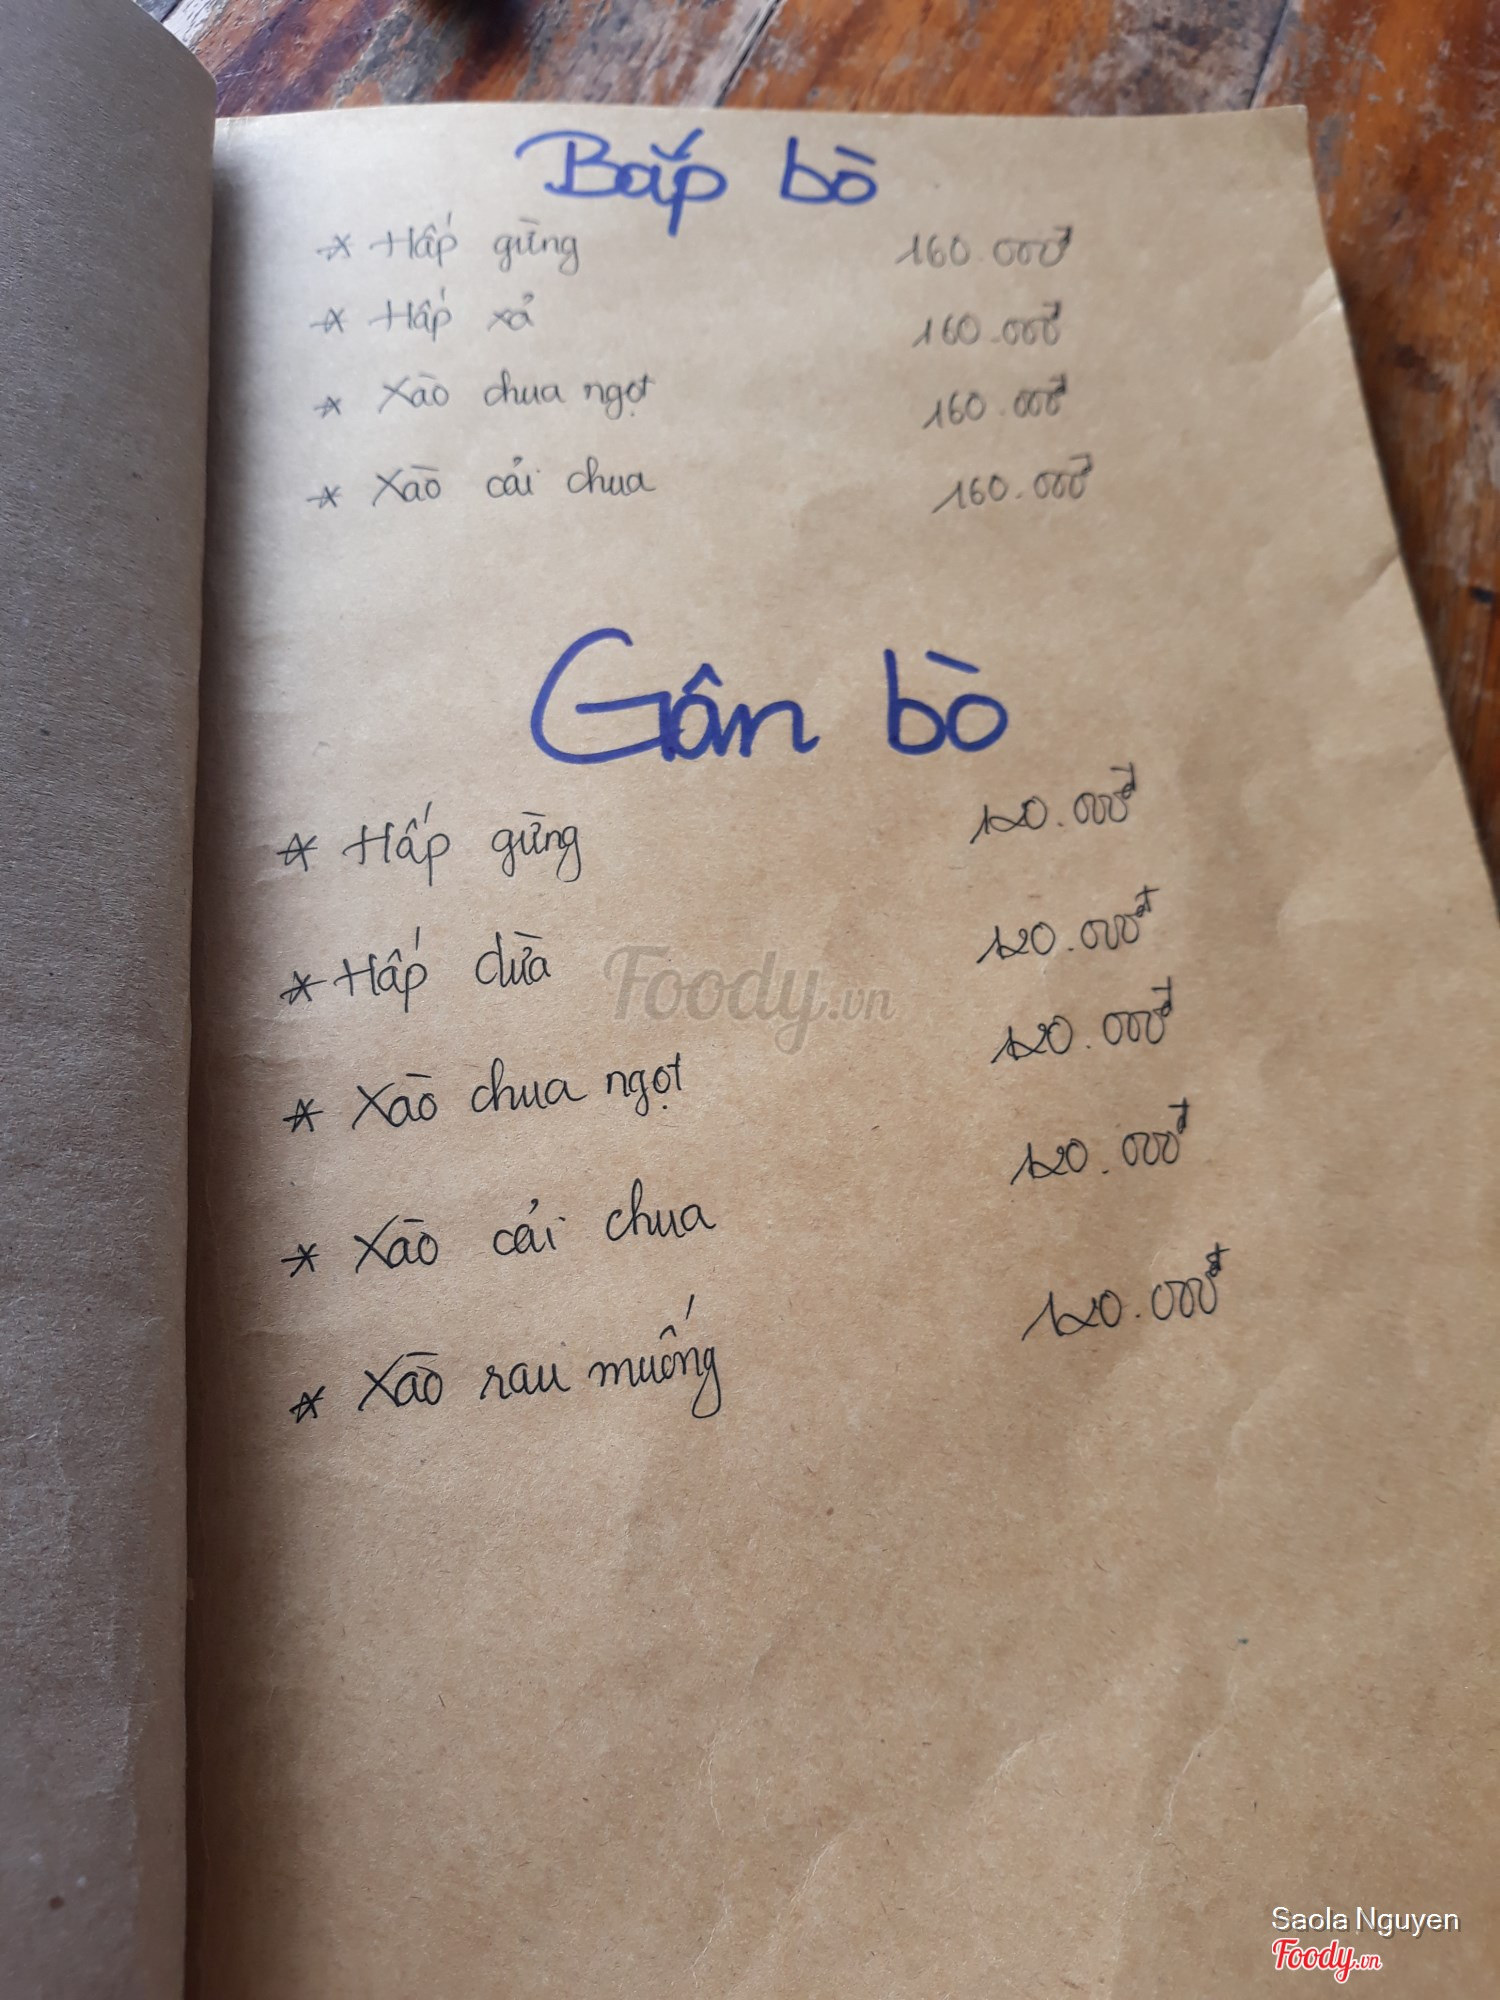 Bắp bò
* Hấp gừng 160.000đ
* Hấp xả 160.000đ
* Xào chua ngọt 160.000đ
* Xào cải chua 160.000đ
Gân bò
* Hấp gừng 120.000đ
* Hấp dừa 120.000đ
* Xào chua ngọt 120.000đ
* Xào cải chua 120.000đ
* Xào rau muống 120.000đ
Foody.vn
Saola Nguyen
Foody.vn